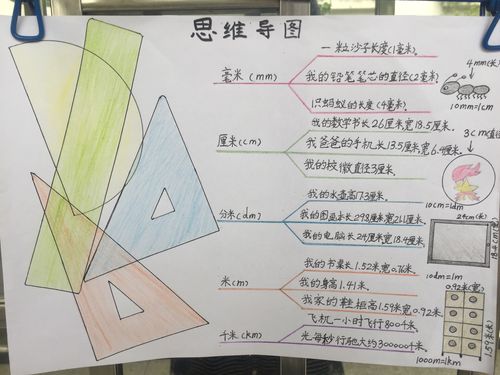 思维导图
一粒沙子长度(1毫米)
毫米(mm)
我的铅笔笔芯的直径(2毫米)
一只蚂蚁的长度(4毫米)
4mm(长)
10mm=1cm
我的数学书长26厘米宽18.5厘米.
厘米(cm)
我爸爸的手机长13.5厘米宽6.9厘米.
我的校徽直径3厘米.
3cm直径
10cm=1dm
我的水壶高17.3厘米.
分米(dm)
我的图画本长29.8厘米宽21.1厘米.
我的电脑长24厘米宽18.4厘米.
24cm(长)
10dm=1m
我的书桌长1.52米宽0.76米.
米(m)
我的身高1.41米.
我家的鞋柜高1.59米宽0.92米.
0.92米(宽)
1.59米(长)
飞机一小时飞行800千米.
千米(km)
光每秒行驶大约300000千米.
1000m=1km